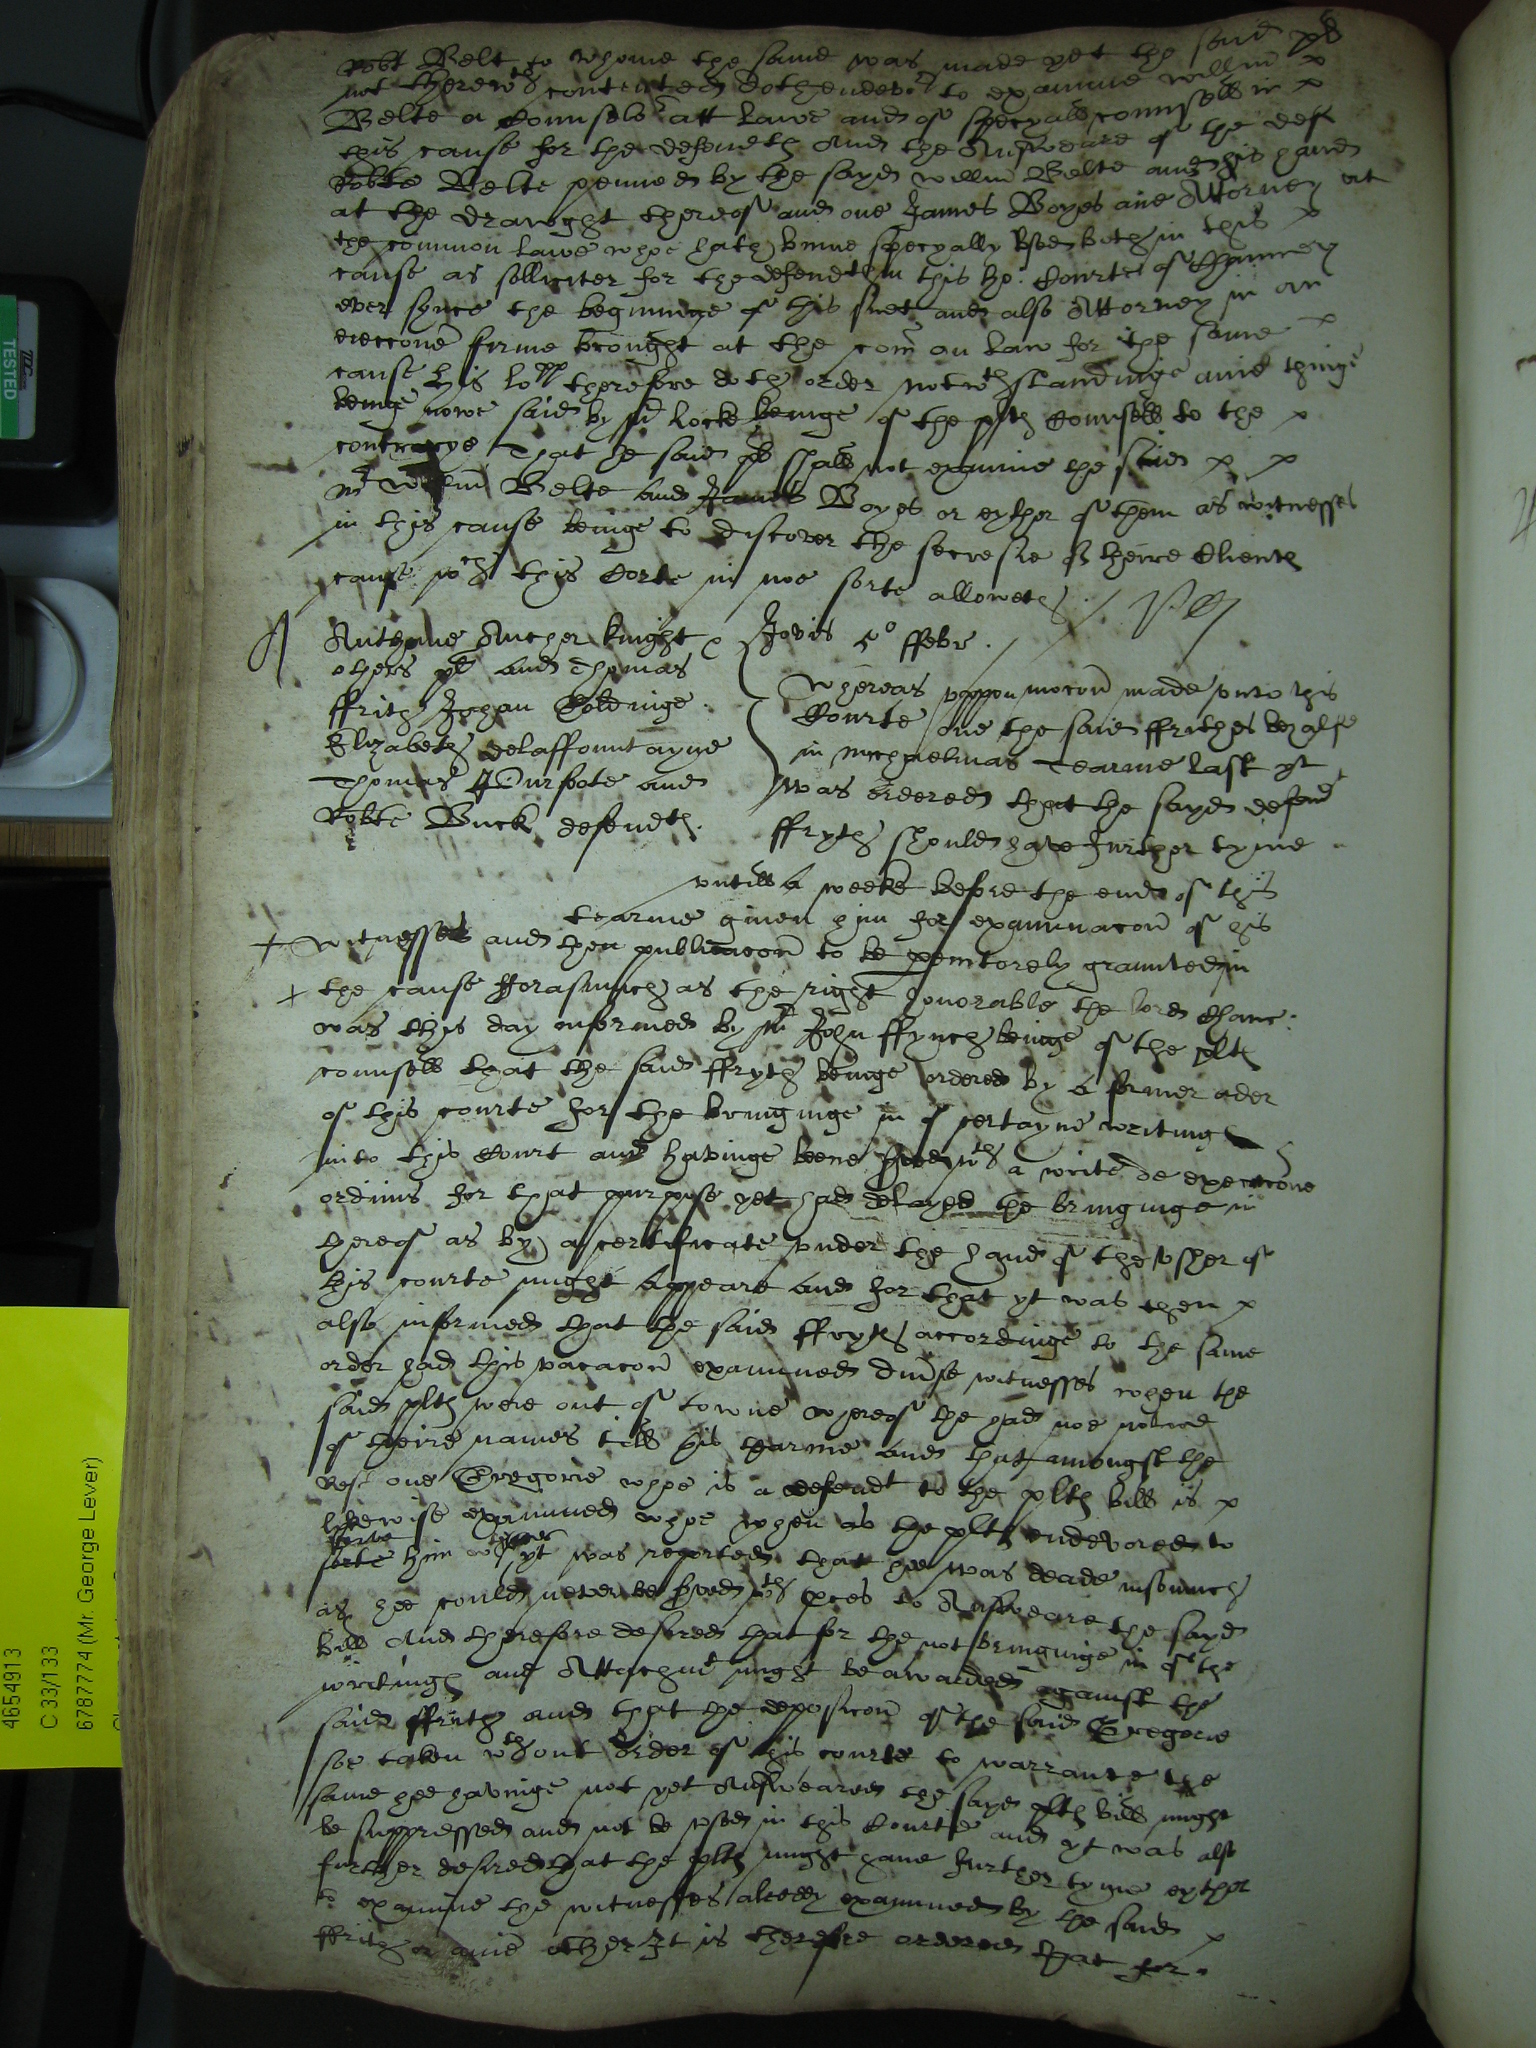 Robt Belt to whome the same was made yet the said pl
not therewth contented dothendevor to examine willm
Belte a Counselor att Lawe and of specyall counsell in
this cause for the defendth And the Answeare of the def
Robte Belte penned by the sayd willm Belte and his hand
at the draught thereof and one James Boyes ane Attorney at
the common lawe whoe hath binne specyally used both in this
cause as solliciter for the defendth in this ho: Courte of Chauncery
ever synce the beginninge of this suet and also Attorney in an
eieccone firme brought at the com̄ on law for the same
cause his lopp therefore doth order notwthstandinge anie thinge
beinge nowe said by mr Locke beinge of the plts Counsell to the
contrarye That the said pl shall not examine the said
mr Willm Belte and James Boyes or eyther of them as witnesses
in this cause beinge to discover the secresie of theire Clients
cause wch this Corte in noe sorte alloweth
A Anthonie Aucher knight
others pl and Thomas
ffrith Johan Goldinge
Elizabeth delaffountayne
Thomas Purfoote and
Robte Buck defendts.
Jovis 5o ffebr.
Whereas uppon mocon made unto this
Courte one the said ffrithes behalfe
in michaelmas Tearme last yt
was ordered that the sayd defend
ffryth should have further tyme
untill a weeke before the end of this
tearme given him for examinacon of his
+ witnesses and then publicacon to be peremtorely graunted in
+ the cause fforasmuch as the right honorable the lord Chanc:
was this day informed by mr John ffynch beinge of the plts
counsell that the said ffryth beinge ordered by a former order
of this courte for the bringinge in of certayne writings
into this Court and havinge beene served wth a write de execucone
ordinis for that purpose yet had delayed the bringinge in
thereof as by a certificate under the hand of the Usher of
this courte might appeare and for that yt was then
also informed that the said ffryth accordinge to the same
order had this vacacon examined divse witnesses when the
said plts were out of towne whereof the had noe notice
of theire names till this tearme and that amongst the
rest one Gregorie whoe is a defendt to the plts bill is
likewise examined whoe when as the plts endevored to
serve
him yt was reported that hee was deade insomuch
as hee could never be served wth pces to Answeare the sayd
bill And therefore desired that for the not bringinge in of the
writings and Attachmt might be awarded against the
said ffrith and that the deposicon of the said Gregorie
soe taken wthout order of this courte to warrante the
same hee havinge not yet Answeared the sayd plts bill might
be suppressed and not be used in this Courte and yt was also
further desired that the plts might have further tyme eyther
to examine the witnesses alredy examined by the said
ffrith or anie other It is therefore ordered that for
TESTED
4654913
C 33/133
6787774 (Mr. George Lever)